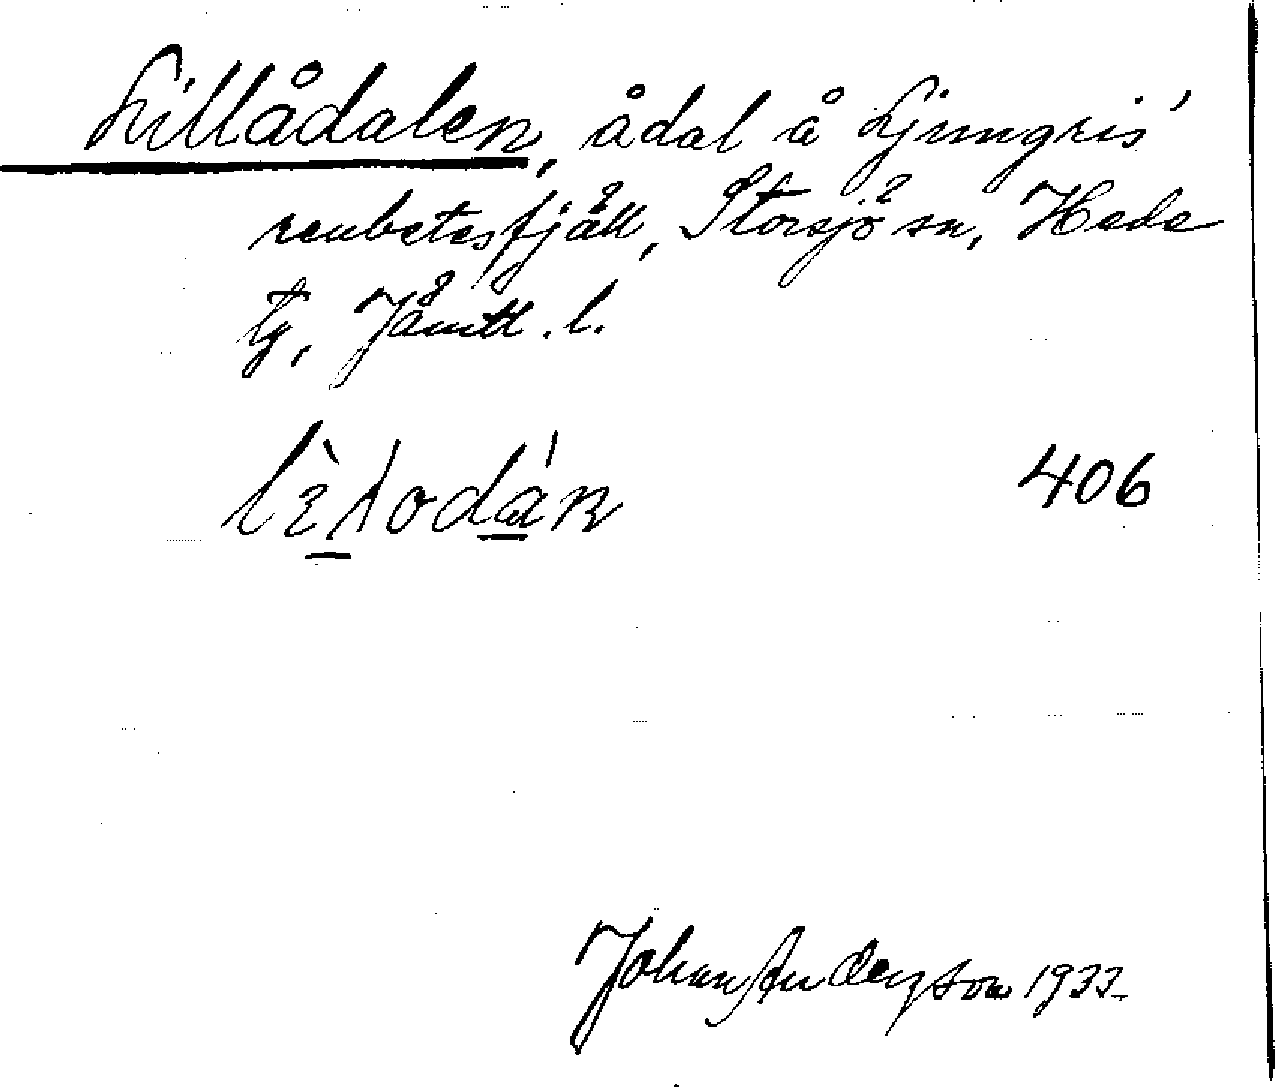 Lillådalen, ådal å Ljungris'
renbetesfjäll, Storsjö sn, Hede
tg, Jämtl. l.
406
Johan Anderzson 1933